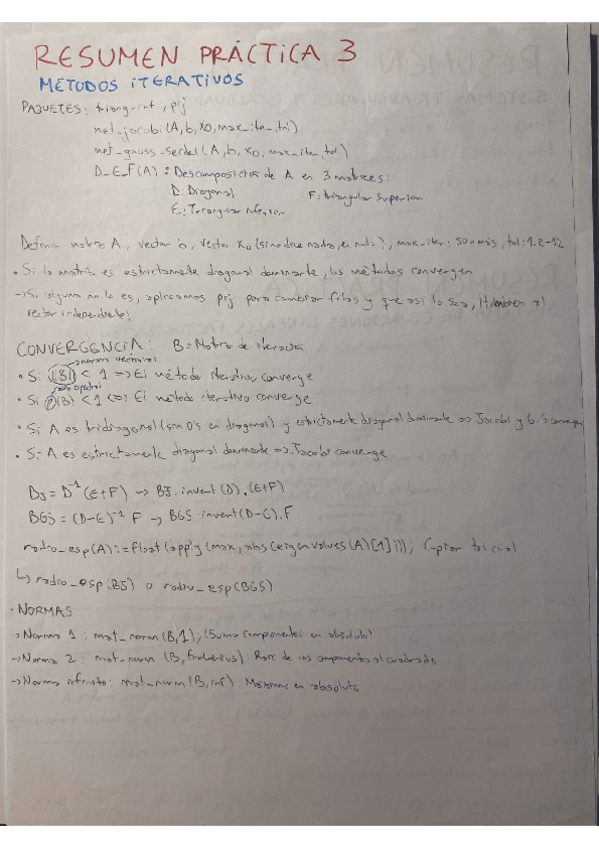 RESUMEN PRÁCTICA 3
MÉTODOS ITERATIVOS
PAQUETES: triang-int, pij
met_jacobi(A,b,x0,max_iter,tol)
met_gauss_seidel(A,b,x0,max_iter,tol)
D_E_F(A): Descomposición de A en 3 matrices:
D: Diagonal F: Triangular Superior
E: Triangular Inferior
Definir matriz A, vector b, vector x0 (si no dice nada, el nulo), max_iter: 500 o más, tol: 1.e-12
• Si la matriz es estrictamente diagonal dominante, los métodos convergen
→ Si alguna no lo es, aplicamos pij para cambiar filas y que así lo sea, ¡también al
vector independiente!
CONVERGENCIA: B=Matriz de iteración
→ normas vectoriales
• Si ||B|| < 1 => El método iterativo converge
• Si ρ(B) < 1 <=> El método iterativo converge
• Si A es tridiagonal (son 0's en diagonal) y estrictamente diagonal dominante => Jacobi y G-S convergen
• Si A es estrictamente diagonal dominante => Jacobi converge
BJ = D⁻¹(E+F) → BJ: invert(D).(E+F)
BGS = (D-E)⁻¹ F → BGS: invert(D-E).F
radio_esp(A):=float(apply(max,abs(eigenvalues(A)[1]))); Copiar tal cual
↳ radio_esp(BJ) o radio_esp(BGS)
• NORMAS
→ Norma 1: mat_norm(B,1); (Suma componentes en absoluto)
→ Norma 2: mat_norm(B,frobenius): Raíz de los componentes al cuadrado
→ Norma infinito: mat_norm(B,inf): Máximo en absoluto